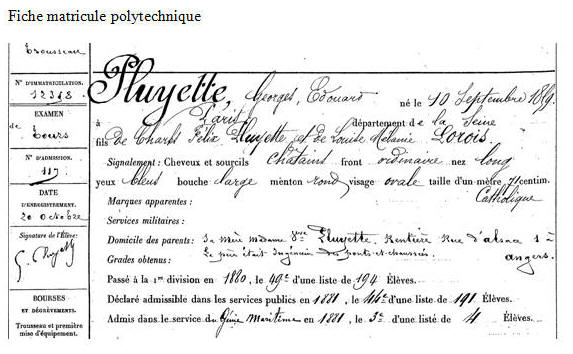 Fiche matricule polytechnique
Trousseau
N° D'IMMATRICULATION.
12318
EXAMEN
de Tours
N° D'ADMISSION.
117
DATE
D'ENREGISTREMENT.
20 octobre
Signature de l'Élève:
G. Pluyette
BOURSES
ET DÉGRÈVEMENTS.
Trousseau et première
mise d'équipement.
Pluyette, Georges, Edouard né le 10 Septembre 1859.
à Paris département de la Seine
fils De Charles Félix Pluyette et de Louise Mélanie Lorois.
Signalement: Cheveux et sourcils châtains front ordinaire nez long
yeux bleus bouche large menton rond visage ovale taille d'un mètre 71 centim.
Marques apparentes: Catholique
Services militaires:
Domicile des parents: Sa mère madame Vve Pluyette, Rentière Rue d'alsace 1 à
Grades obtenus: Le père était Ingénieur des ponts et chaussées. angers.
Passé à la 1re division en 1880, le 49e d'une liste de 194 Élèves.
Déclaré admissible dans les services publics en 1881, le 44e d'une liste de 191 Élèves.
Admis dans le service du Génie Maritime en 1881, le 3e d'une liste de 4 Élèves.